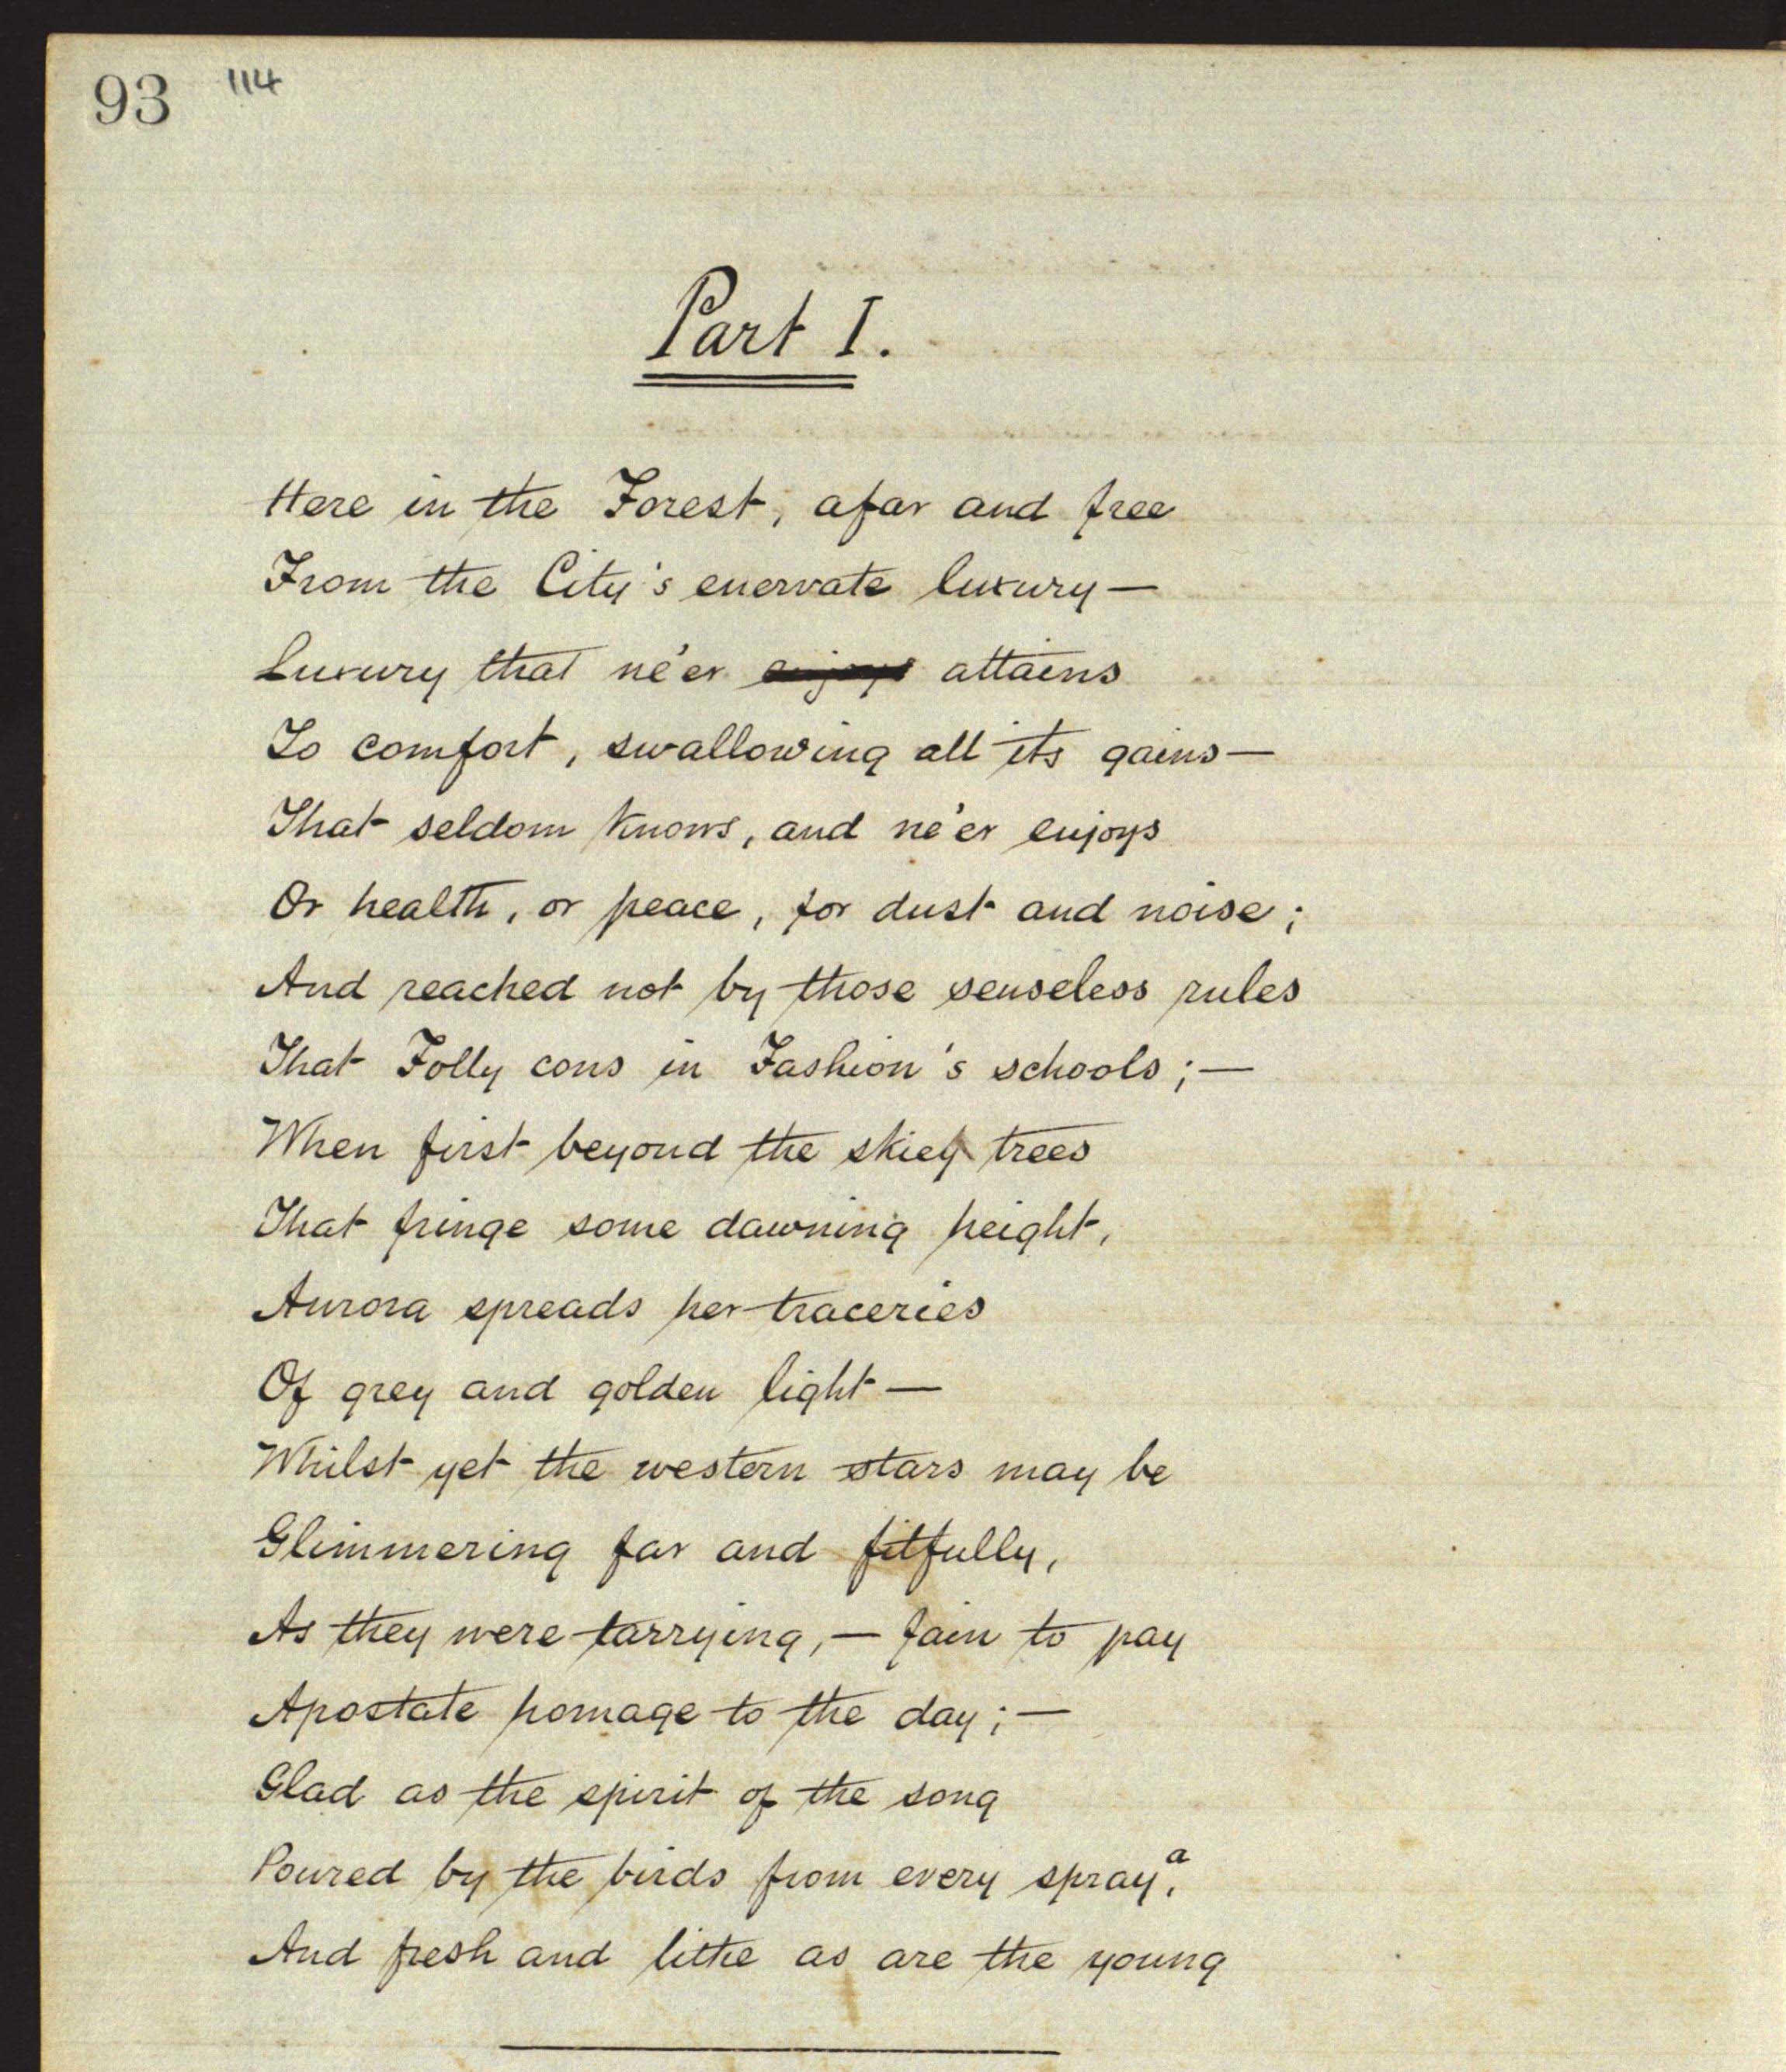 93 114
Part I.
Here in the Forest, afar and free
From the City's enervate luxury—
Luxury that ne'er enjoys attains
To comfort, swallowing all its gains—
That seldom knows, and ne'er enjoys
Or health, or peace, for dust and noise;
And reached not by those senseless rules
That Folly cons in Fashion's schools;—
When first beyond the skiey trees
That fringe some dawning height,
Aurora spreads her traceries
Of grey and golden light—
Whilst yet the western stars may be
Glimmering far and fitfully,
As they were tarrying,— fain to pay
Apostate homage to the day;—
Glad as the spirit of the song
Poured by the birds from every spray,a
And fresh and lithe as are the young